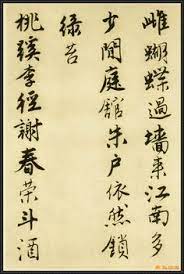 雌蝴蝶過墻來江南多
少閒庭館朱户依然鎖
綠苔
桃蹊李徑謝春榮斗酒